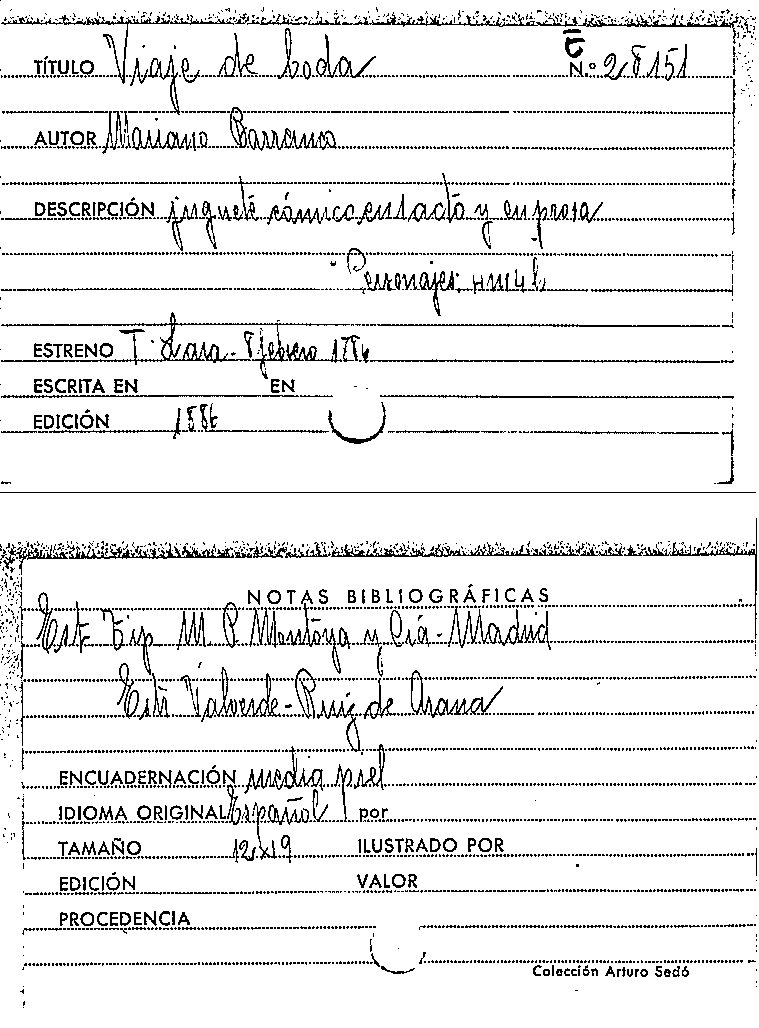 TÍTULO Viaje de boda N.º 28151
AUTOR Mariano Barranco
DESCRIPCIÓN juguete cómico en 1 acto y en prosa
Personajes:
ESTRENO T. Lara - 8 febrero 1886
ESCRITA EN EN
EDICIÓN 1886
NOTAS BIBLIOGRÁFICAS
Est Tip M P Montoya y Ciá - Madrid
Valverde - Ruiz de Arana
ENCUADERNACIÓN media piel
IDIOMA ORIGINAL Español por
TAMAÑO 12x19 ILUSTRADO POR
EDICIÓN VALOR
PROCEDENCIA
Colección Arturo Sedó